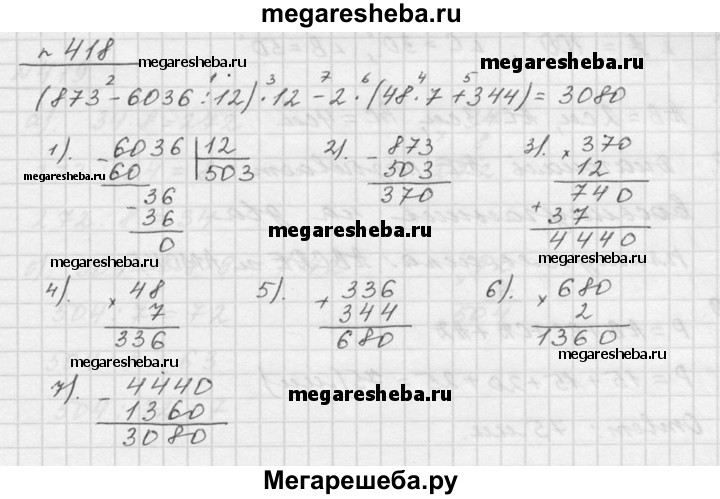 megaresheba.ru
n 418
megaresheba.ru megaresheba.ru
(873 - 6036 : 12) · 12 - 2 · (48 · 7 + 344) = 3080
2 1 3 7 6 4 5
1). 6036 | 12 2). 873 3). 370
- 60 503 - 503 × 12
- 36 370 740
36 + 37
0 4440
megaresheba.ru megaresheba.ru megaresheba.ru
4). 48 5). 336 6). 680
× 7 + 344 × 2
336 680 1360
megaresheba.ru megaresheba.ru
7). 4440
- 1360
3080
megaresheba.ru
Мегарешеба.ру